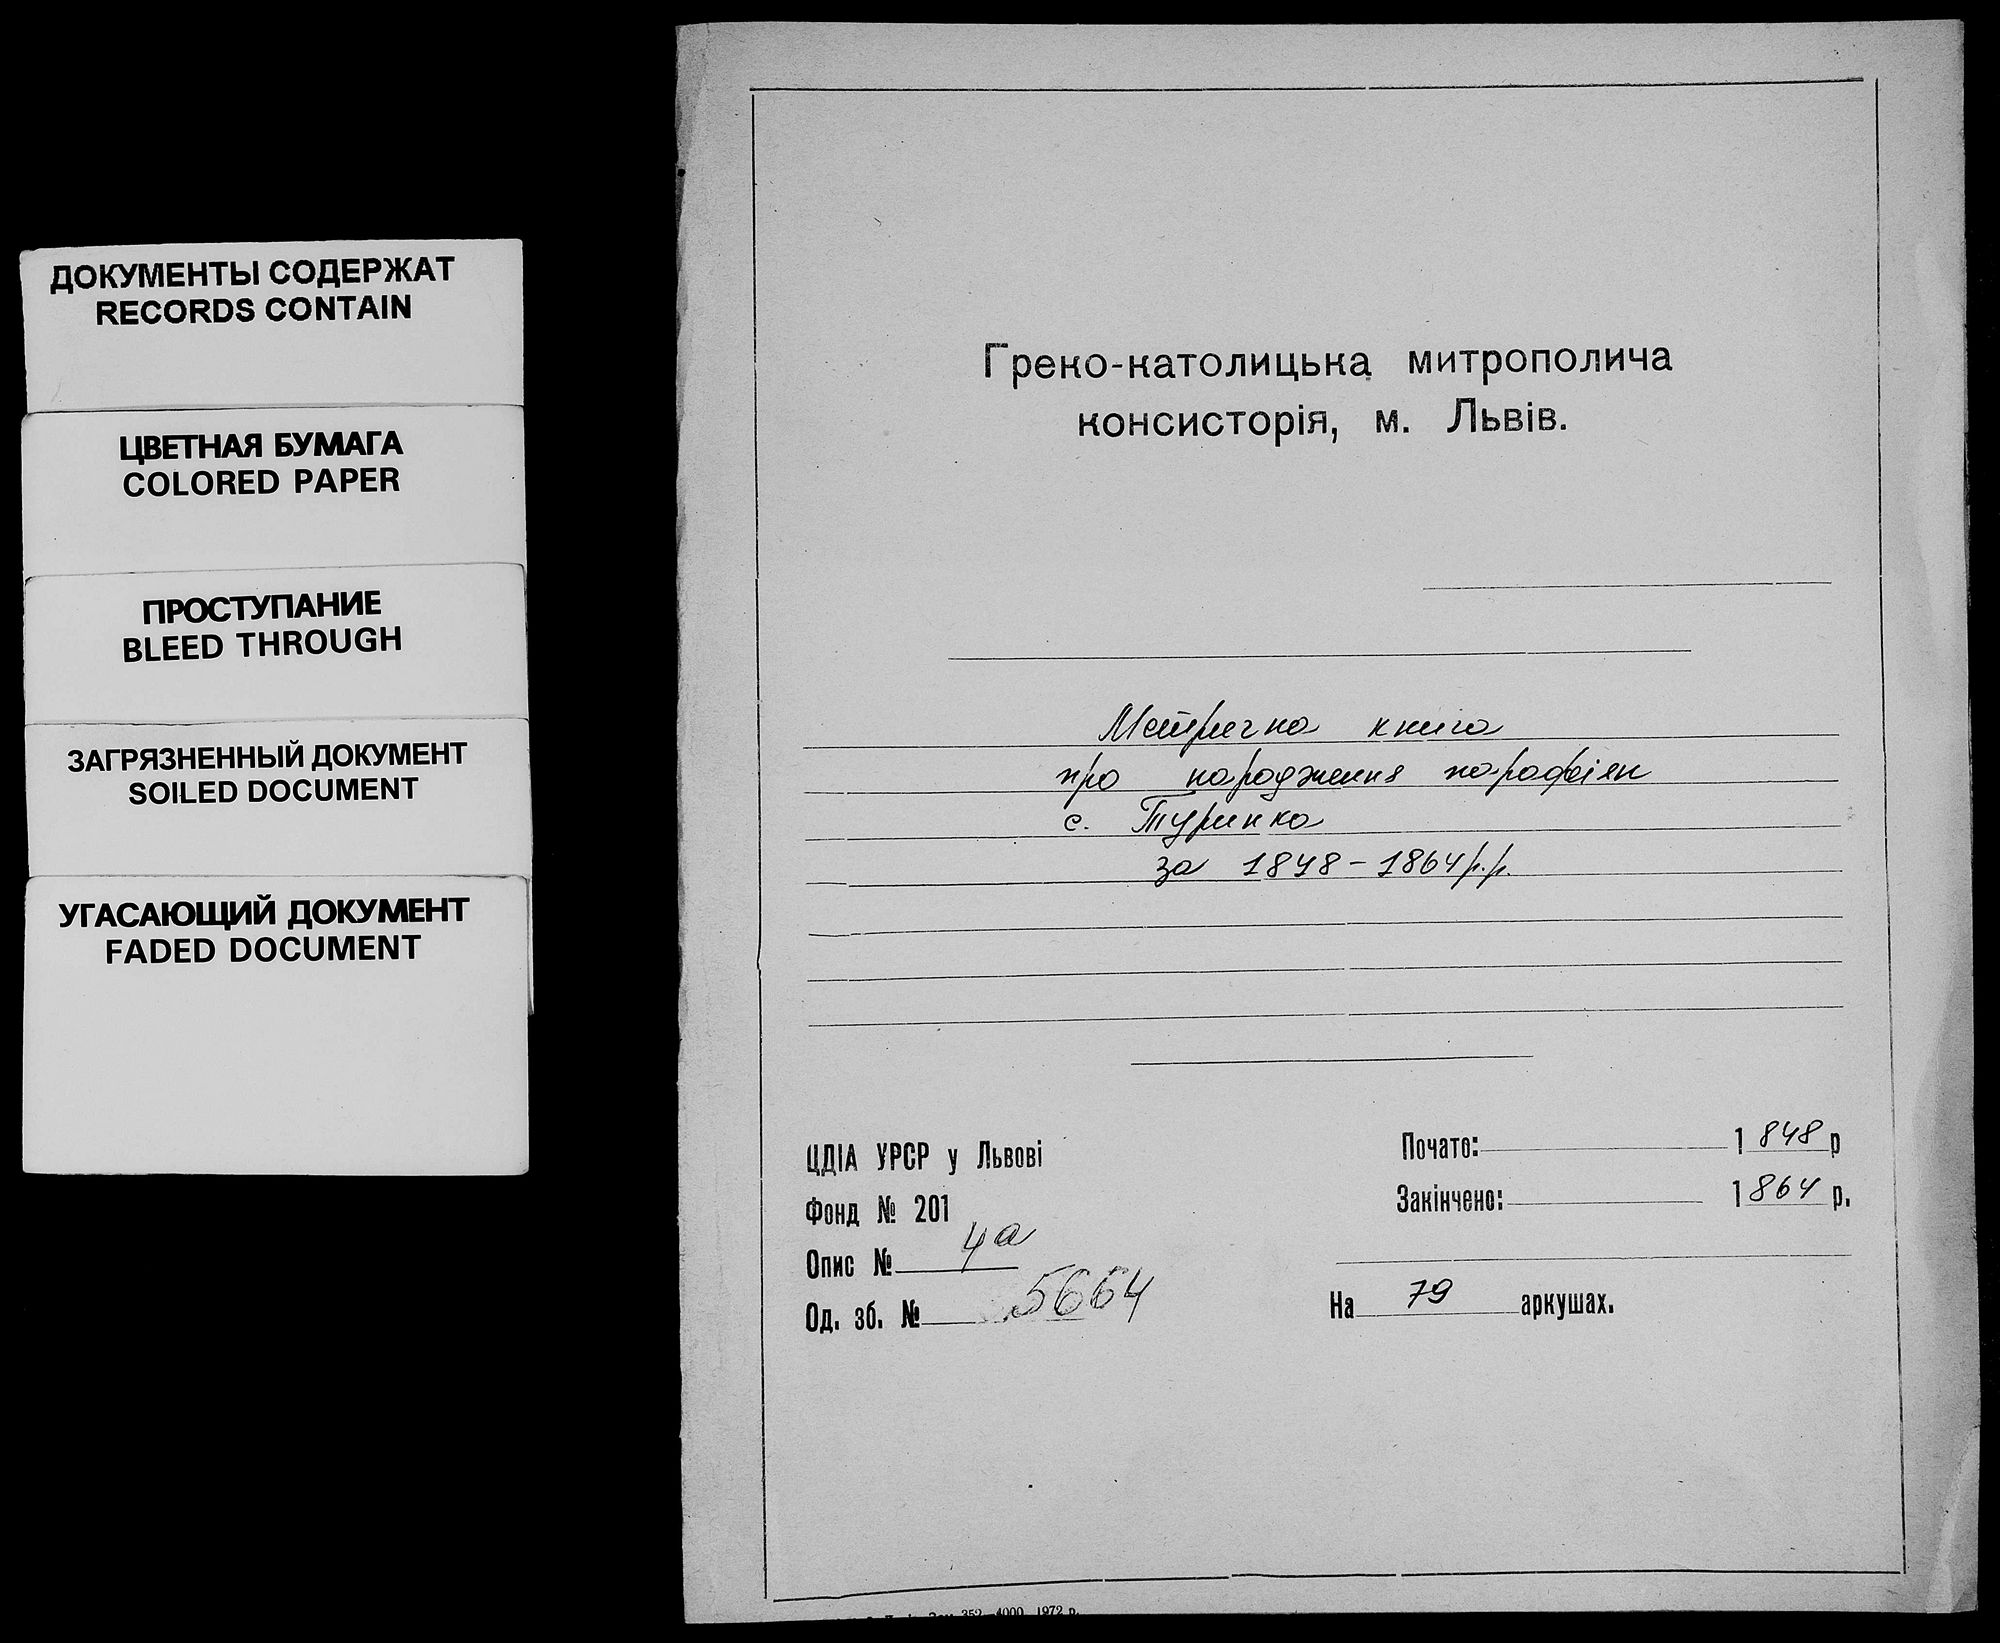 ДОКУМЕНТЫ СОДЕРЖАТ
RECORDS CONTAIN
ЦВЕТНАЯ БУМАГА
COLORED PAPER
ПРОСТУПАНИЕ
BLEED THROUGH
ЗАГРЯЗНЕННЫЙ ДОКУМЕНТ
SOILED DOCUMENT
УГАСАЮЩИЙ ДОКУМЕНТ
FADED DOCUMENT
Греко-католицька митрополича
консисторія, м. Львів.
Метрична книга
про народження парафіян
с. Туринка
за 1848-1864р.р.
ЦДІА УРСР у Львові
Фонд № 201
Опис № 4а
Од. зб. № 5664
Почато: 1848 р
Закінчено: 1864 р.
На 79 аркушах.
352-4000 1972 р.